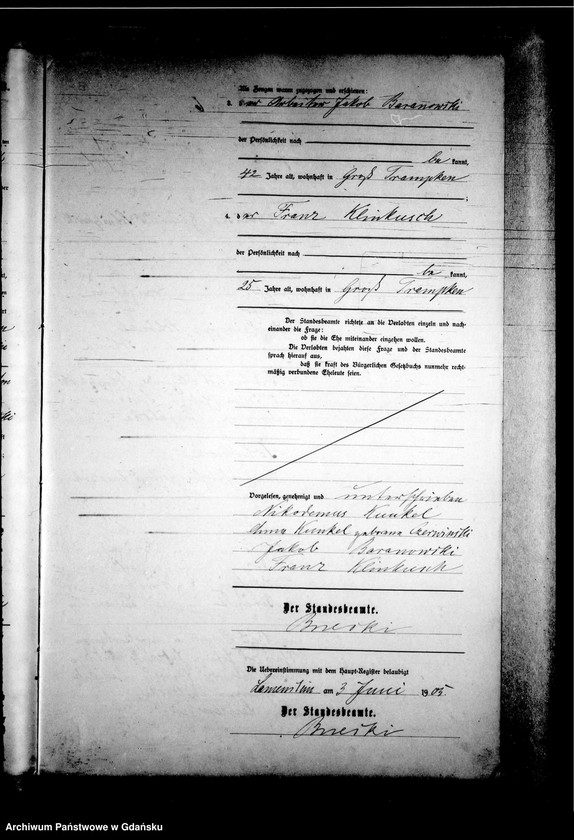 Als Zeugen waren zugezogen und erschienen:
3. der Arbeiter Jakob Baranowski
der Persönlichkeit nach
be kannt,
42 Jahre alt, wohnhaft in Groß Trampken
4. der Franz Klinkusch
der Persönlichkeit nach
be kannt,
25 Jahre alt, wohnhaft in Groß Trampken
Der Standesbeamte richtete an die Verlobten einzeln und nach-
einander die Frage:
ob sie die Ehe miteinander eingehen wollen.
Die Verlobten bejahten diese Frage und der Standesbeamte
sprach hierauf aus,
daß sie kraft des Bürgerlichen Gesetzbuchs nunmehr recht-
mäßig verbundene Eheleute seien.
Vorgelesen, genehmigt und unterschrieben
Nikodemus Kunkel
Anna Kunkel geborene Czerwinski
Jakob Baranowski
Franz Klinkusch
Der Standesbeamte.
Die Uebereinstimmung mit dem Haupt-Register beglaubigt
am 3 Juni 1905.
Der Standesbeamte.
Archiwum Państwowe w Gdańsku